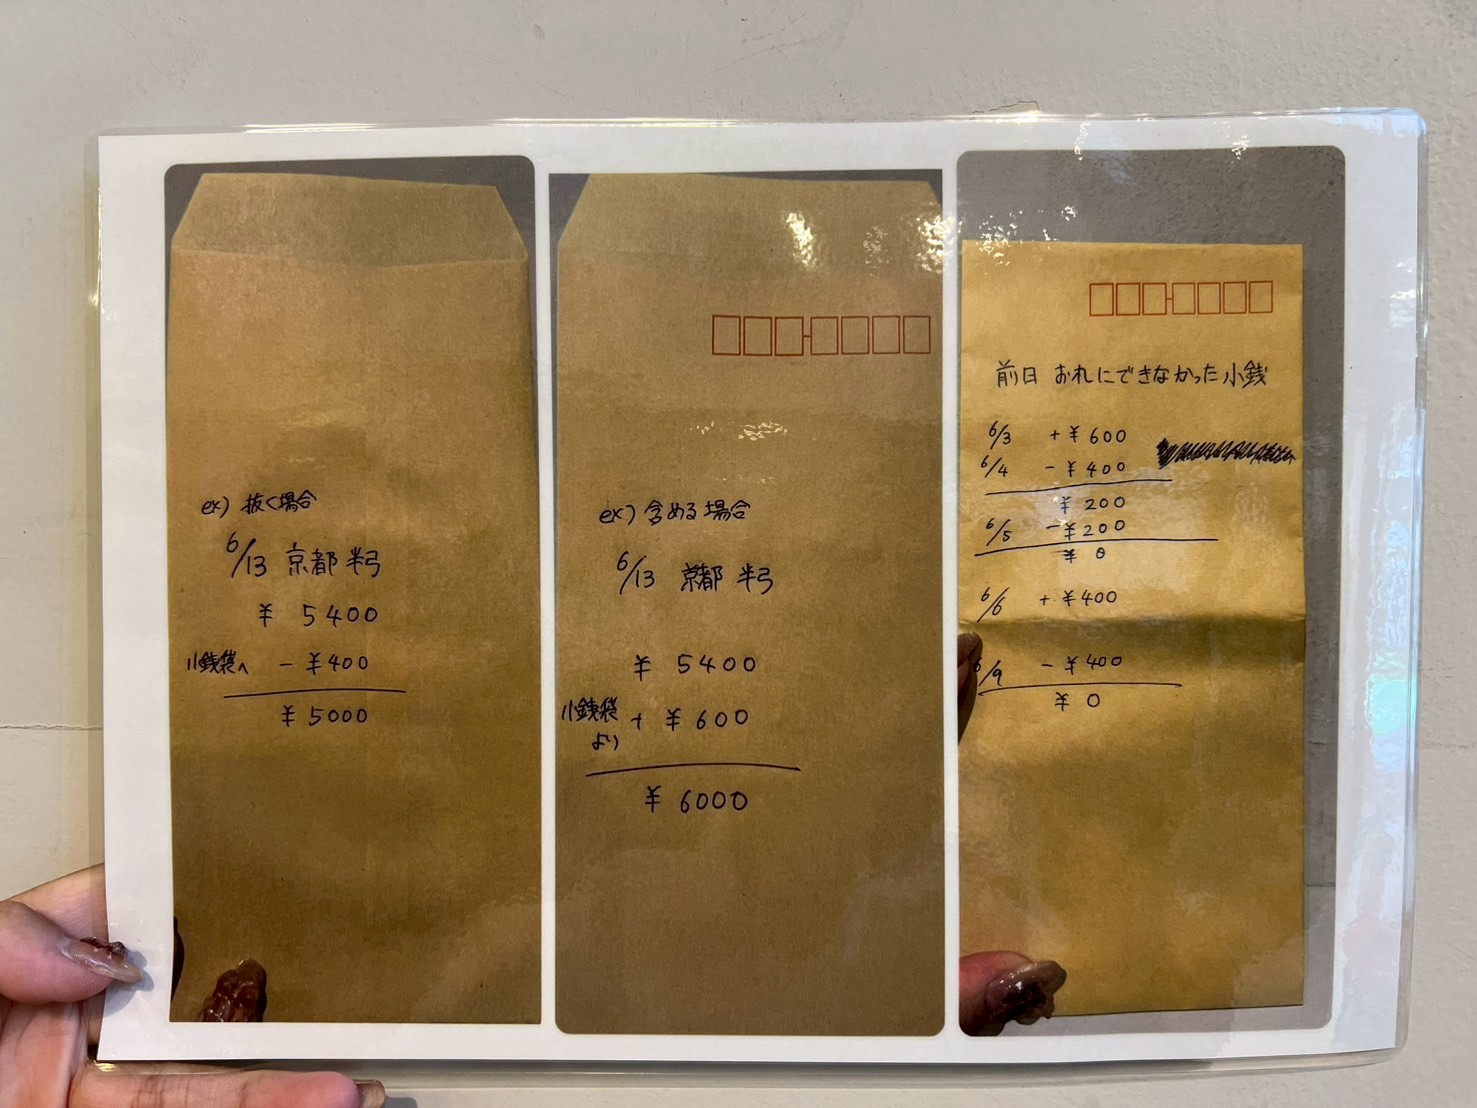 ex) 抜く場合
6/13 京都 半弓
¥ 5400
小銭袋へ - ¥400
¥ 5000
ex) 含める場合
6/13 京都 半弓
¥ 5400
小銭袋より + ¥600
¥ 6000
前日 おれにできなかった小銭
6/3 +¥600
6/4 -¥400
¥200
6/5 -¥200
¥0
6/6 +¥400
6/9 -¥400
¥0